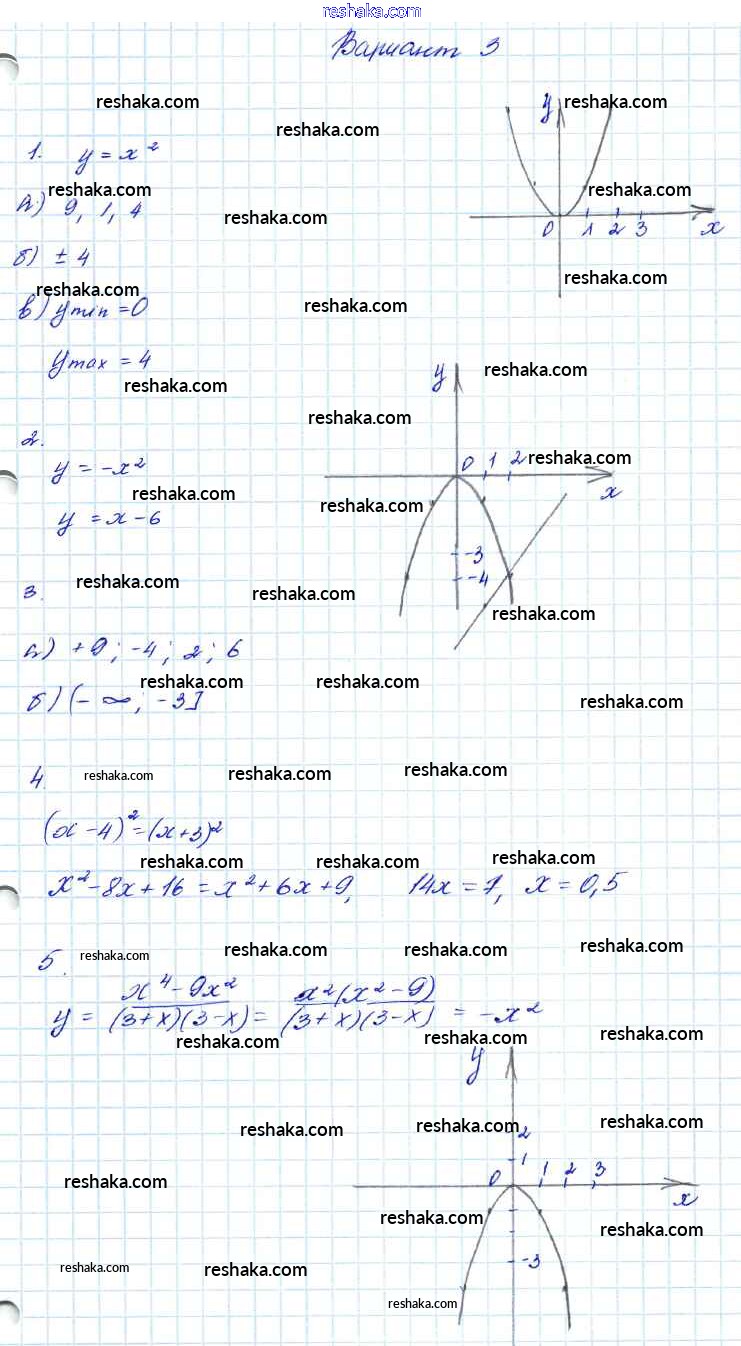 reshaka.com
Вариант 3
reshaka.com reshaka.com
reshaka.com
y
1. y = x²
reshaka.com reshaka.com
а) 9, 1, 4 reshaka.com
0 1 2 3 x
б) ± 4
reshaka.com reshaka.com
в) y min = 0 reshaka.com
y max = 4 reshaka.com
reshaka.com y
reshaka.com
2.
y = -x² 0 1 2 reshaka.com
reshaka.com x
y = x - 6 reshaka.com
-3
reshaka.com -4
3. reshaka.com
reshaka.com
а) +9; -4; 2; 6
reshaka.com reshaka.com
б) (- ∞; -3] reshaka.com
4. reshaka.com reshaka.com reshaka.com
(x - 4)² = (x + 3)²
reshaka.com reshaka.com reshaka.com
x² - 8x + 16 = x² + 6x + 9, 14x = 7, x = 0,5
5. reshaka.com reshaka.com reshaka.com reshaka.com
y = x⁴ - 9x² / (3 + x)(3 - x) = x²(x² - 9) / (3 + x)(3 - x) = -x²
reshaka.com reshaka.com reshaka.com
y
reshaka.com reshaka.com reshaka.com
2
1
0 1 2 3
reshaka.com x
reshaka.com reshaka.com
-3
reshaka.com reshaka.com
reshaka.com